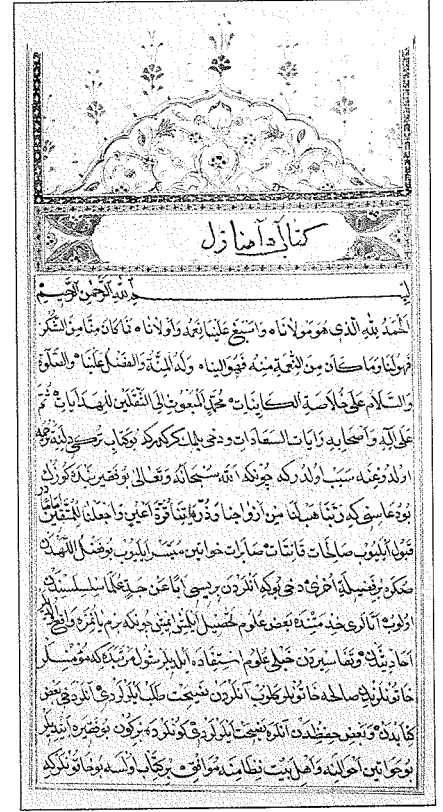 كتاب آداب منازل
بسم الله الرحمن الرحيم
الحمد لله الذى هو مولانا و اسبغ علينا نعمه و اولانا فاكان منا من الشكر
فهو لنا وما كان من النعمة منه فهو الينا وله المنة والفضل علينا والصلوة
والسلام على خلاصة الكاينات محمد المبعوث الى الثقلين للهدايات ثم
على آله واصحابه رايات السعادات ودخى بيلمك كركدركه بو كتاب تركى دلينه ترجمه
اولدوغنه سبب اولدركه چونكه الله سبحانه وتعالى بو فقير بنده
بو دعاسنى كه ربنا هب لنا من ازواجنا وذرياتنا قرة اعين واجعلنا للمتقين اماما در
قبول ايليوب صالحات قانتات صابرات خواتين ميسر ايليوب بو فضل اللهدن
صكره بر فضيلة اخرى دخى بوكه انلردن بريسى ابا عن جد علما سلسلسندن
اولوب آنالرى خدمتنده بعض علوم تحصيل ايلمش ايمش چونكه بزم يانمزه واقع
احاديثدن و تفاسيردن خيلى علوم استفاده ايلديلر شول مرتبه ده كه مؤمنلر
خاتونلرينك صالحه خاتونلر كلوب آنلردن نصيحت طلب ايلرلردى آنلر دخى بعض
كتابدن و بعض حفظدن آنلره نصيحت ايلرلردى كونلرده بر كون بو فقيره ايتديلر
بو خواتين احوالنه و اهل بيت نظامنه موافق بر كتاب اولسه بو خاتونلركه